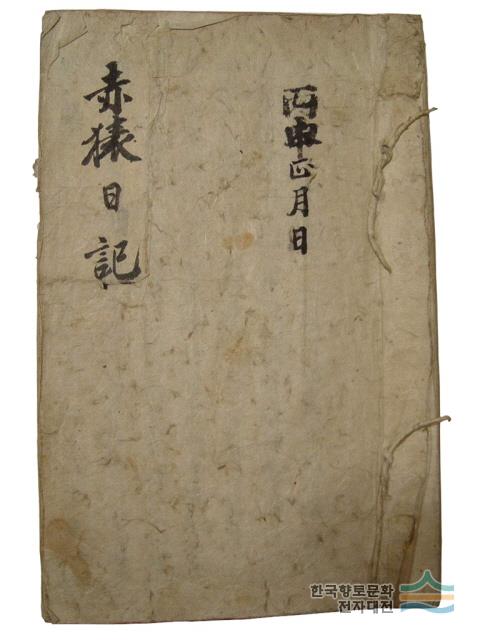 赤猿日記
丙申正月日
한국향토문화
전자대전